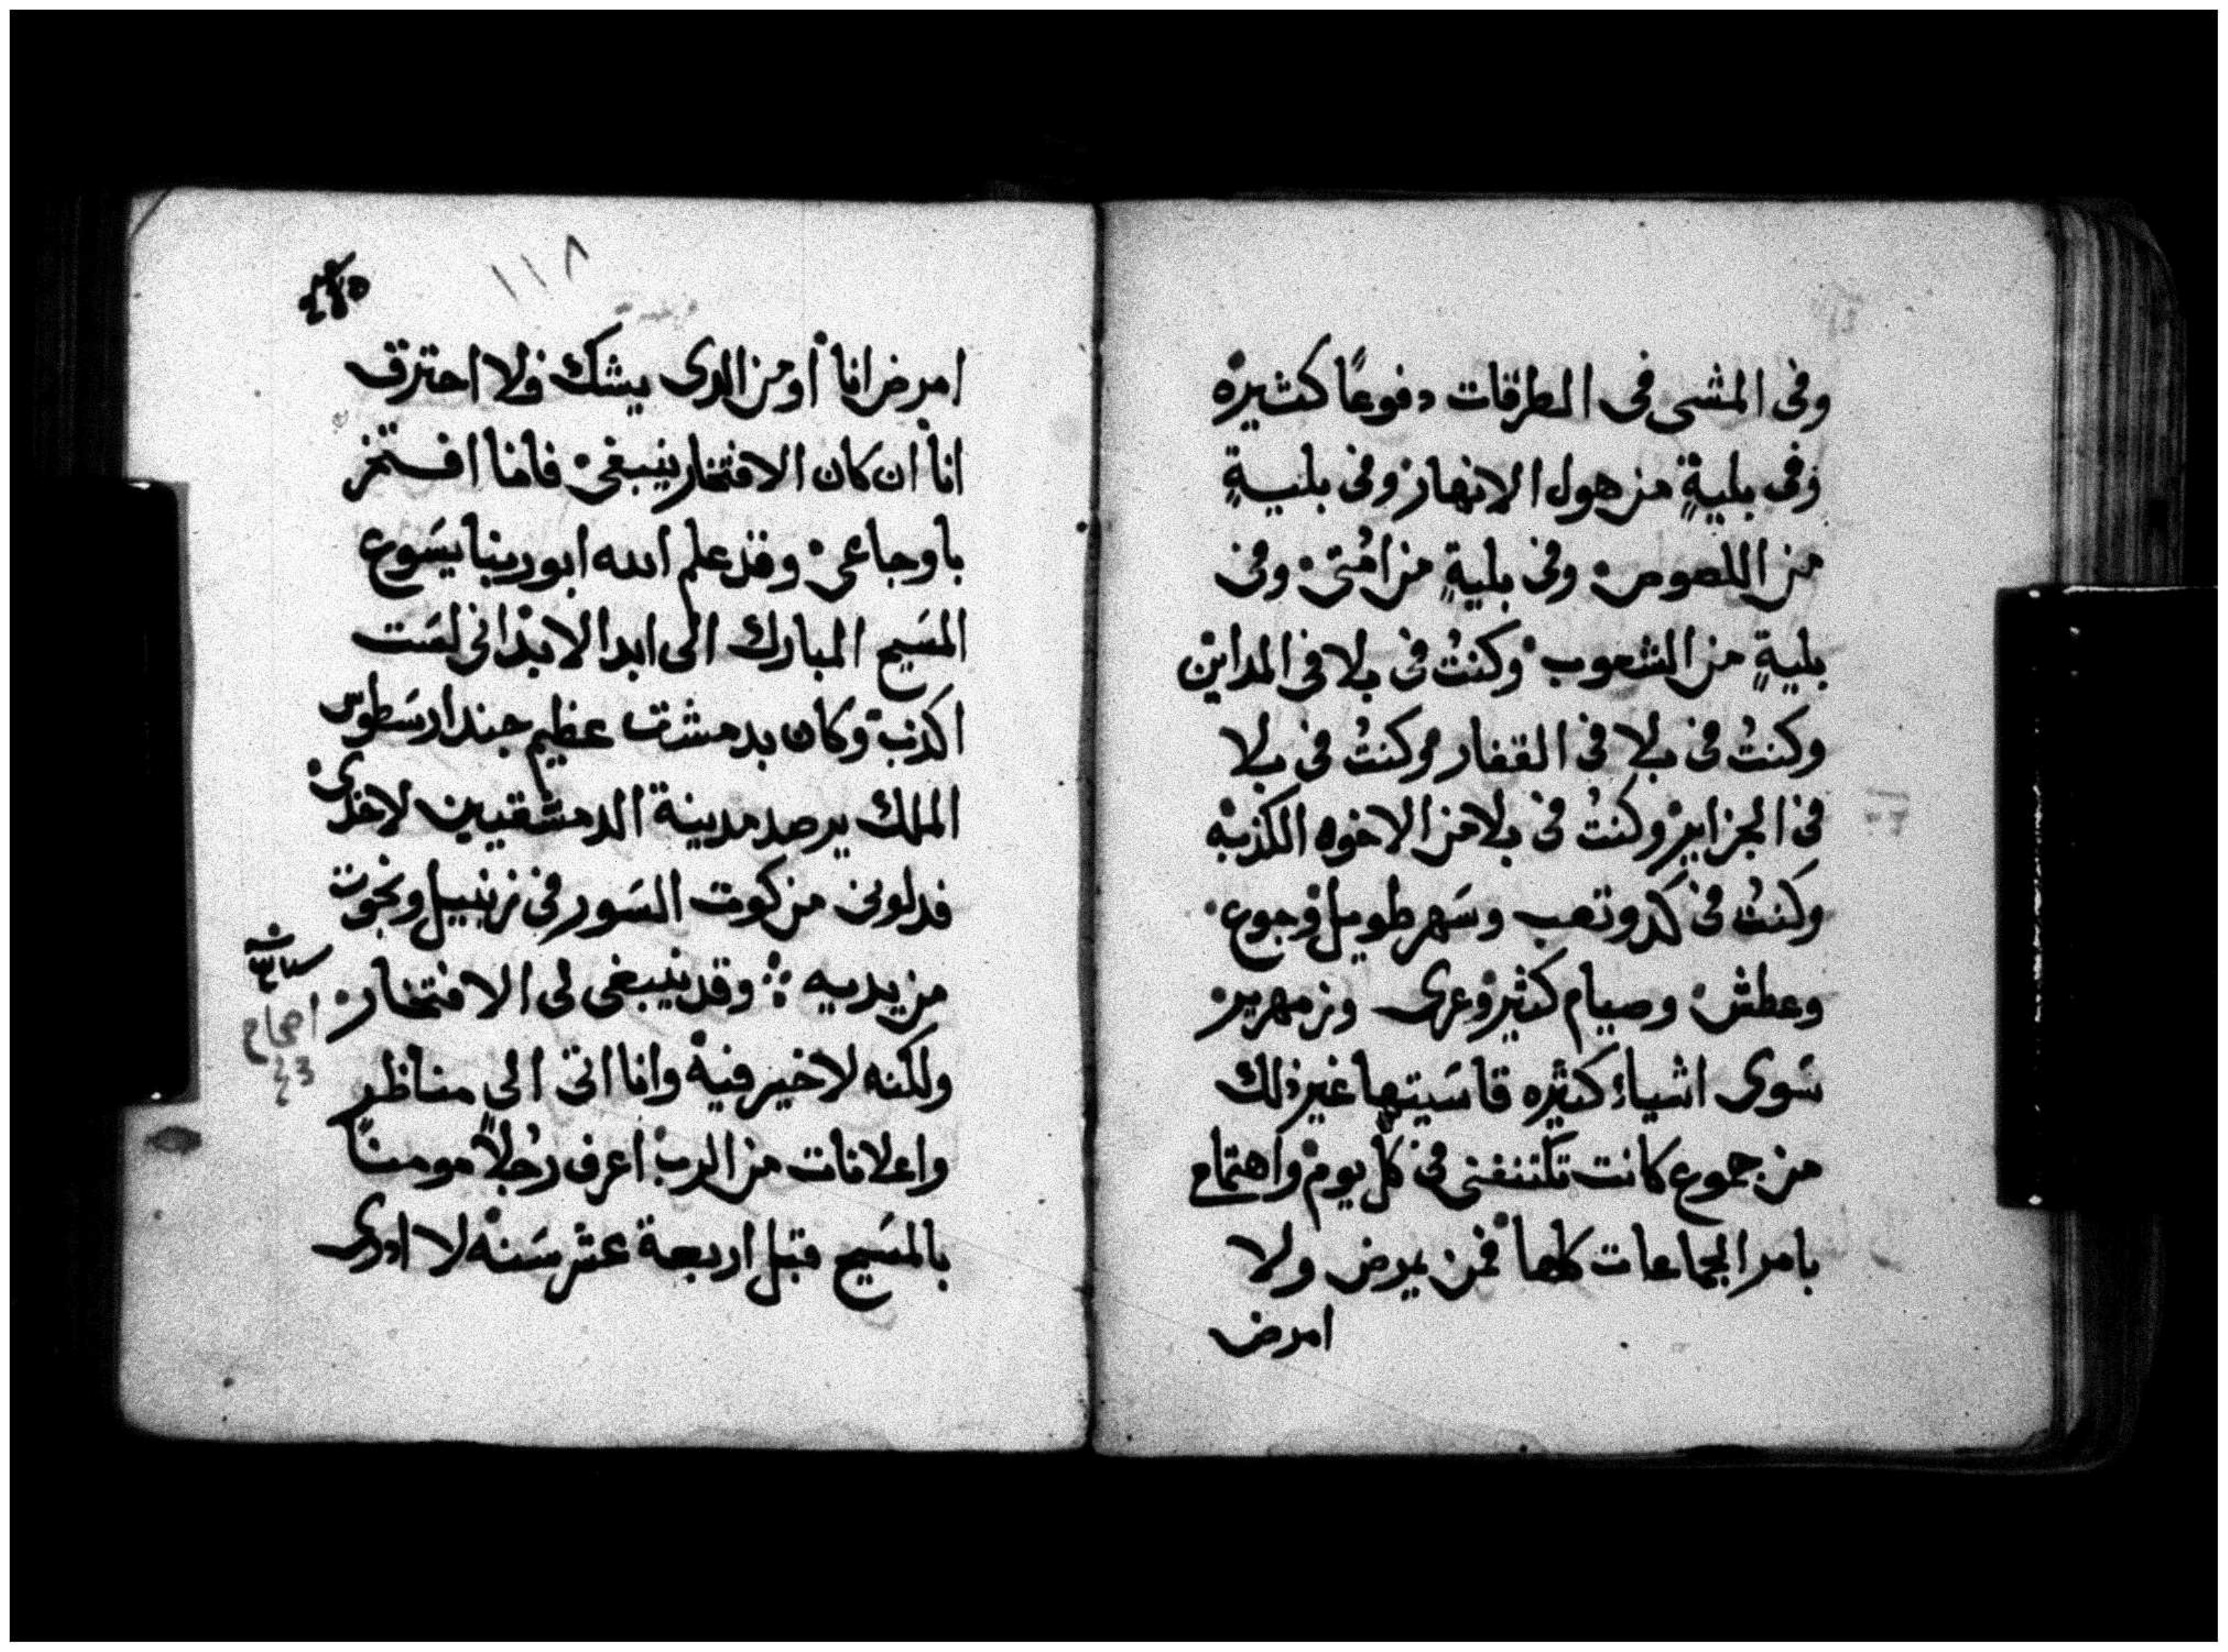 وفى المشى فى الطرقات دفوعًا كثيره
وفى بليةٍ من هول الانهار وفى بليةٍ
من اللصوص وفى بليةٍ من امُتى وفى
بليةٍ من الشعوب وكنتُ فى بلا فى المداين
وكنتُ فى بلا فى القفار وكنتُ فى بلا
فى الجزاير وكنتُ فى بلا من الاخوه الكذبه
وكنتُ فى كد وتعب وسَهر طويل وجوع
وعطش وصيام كثير وعرى وزمهرير
سَوى اشياء كثيره قاسَيتها غير ذلك
من جموع كانت تكتنفنى فى كل يوم واهتمام
بامر الجماعات كلها فمن يمرض ولا
امرض
١١٨
امرض انا او من الدى يشك ولا احترق
انا ان كان الافتخار ينبغى فانا افتخر
باوجاعى وقد علم الله ابو ربنا يسَوع
المسَيح المبارك الى ابد الابد انى لسَت
اكذب وكان بدمشق عظيم جند ارسَطوس
الملك يرصد مدينة الدمشقيين لاخدى
فدلونى من كوت السَور فى زنبيل ونجوت
من يديه ⁘ وقد ينبغى لى الافتخار
ولكنه لا خير فيه وانا اتى الى مناظر
واعلانات من الرب اعرف رجُلاً مومنًا
بالمسَيح قبل اربعة عشر سَنه لا ادرى
اصحاح